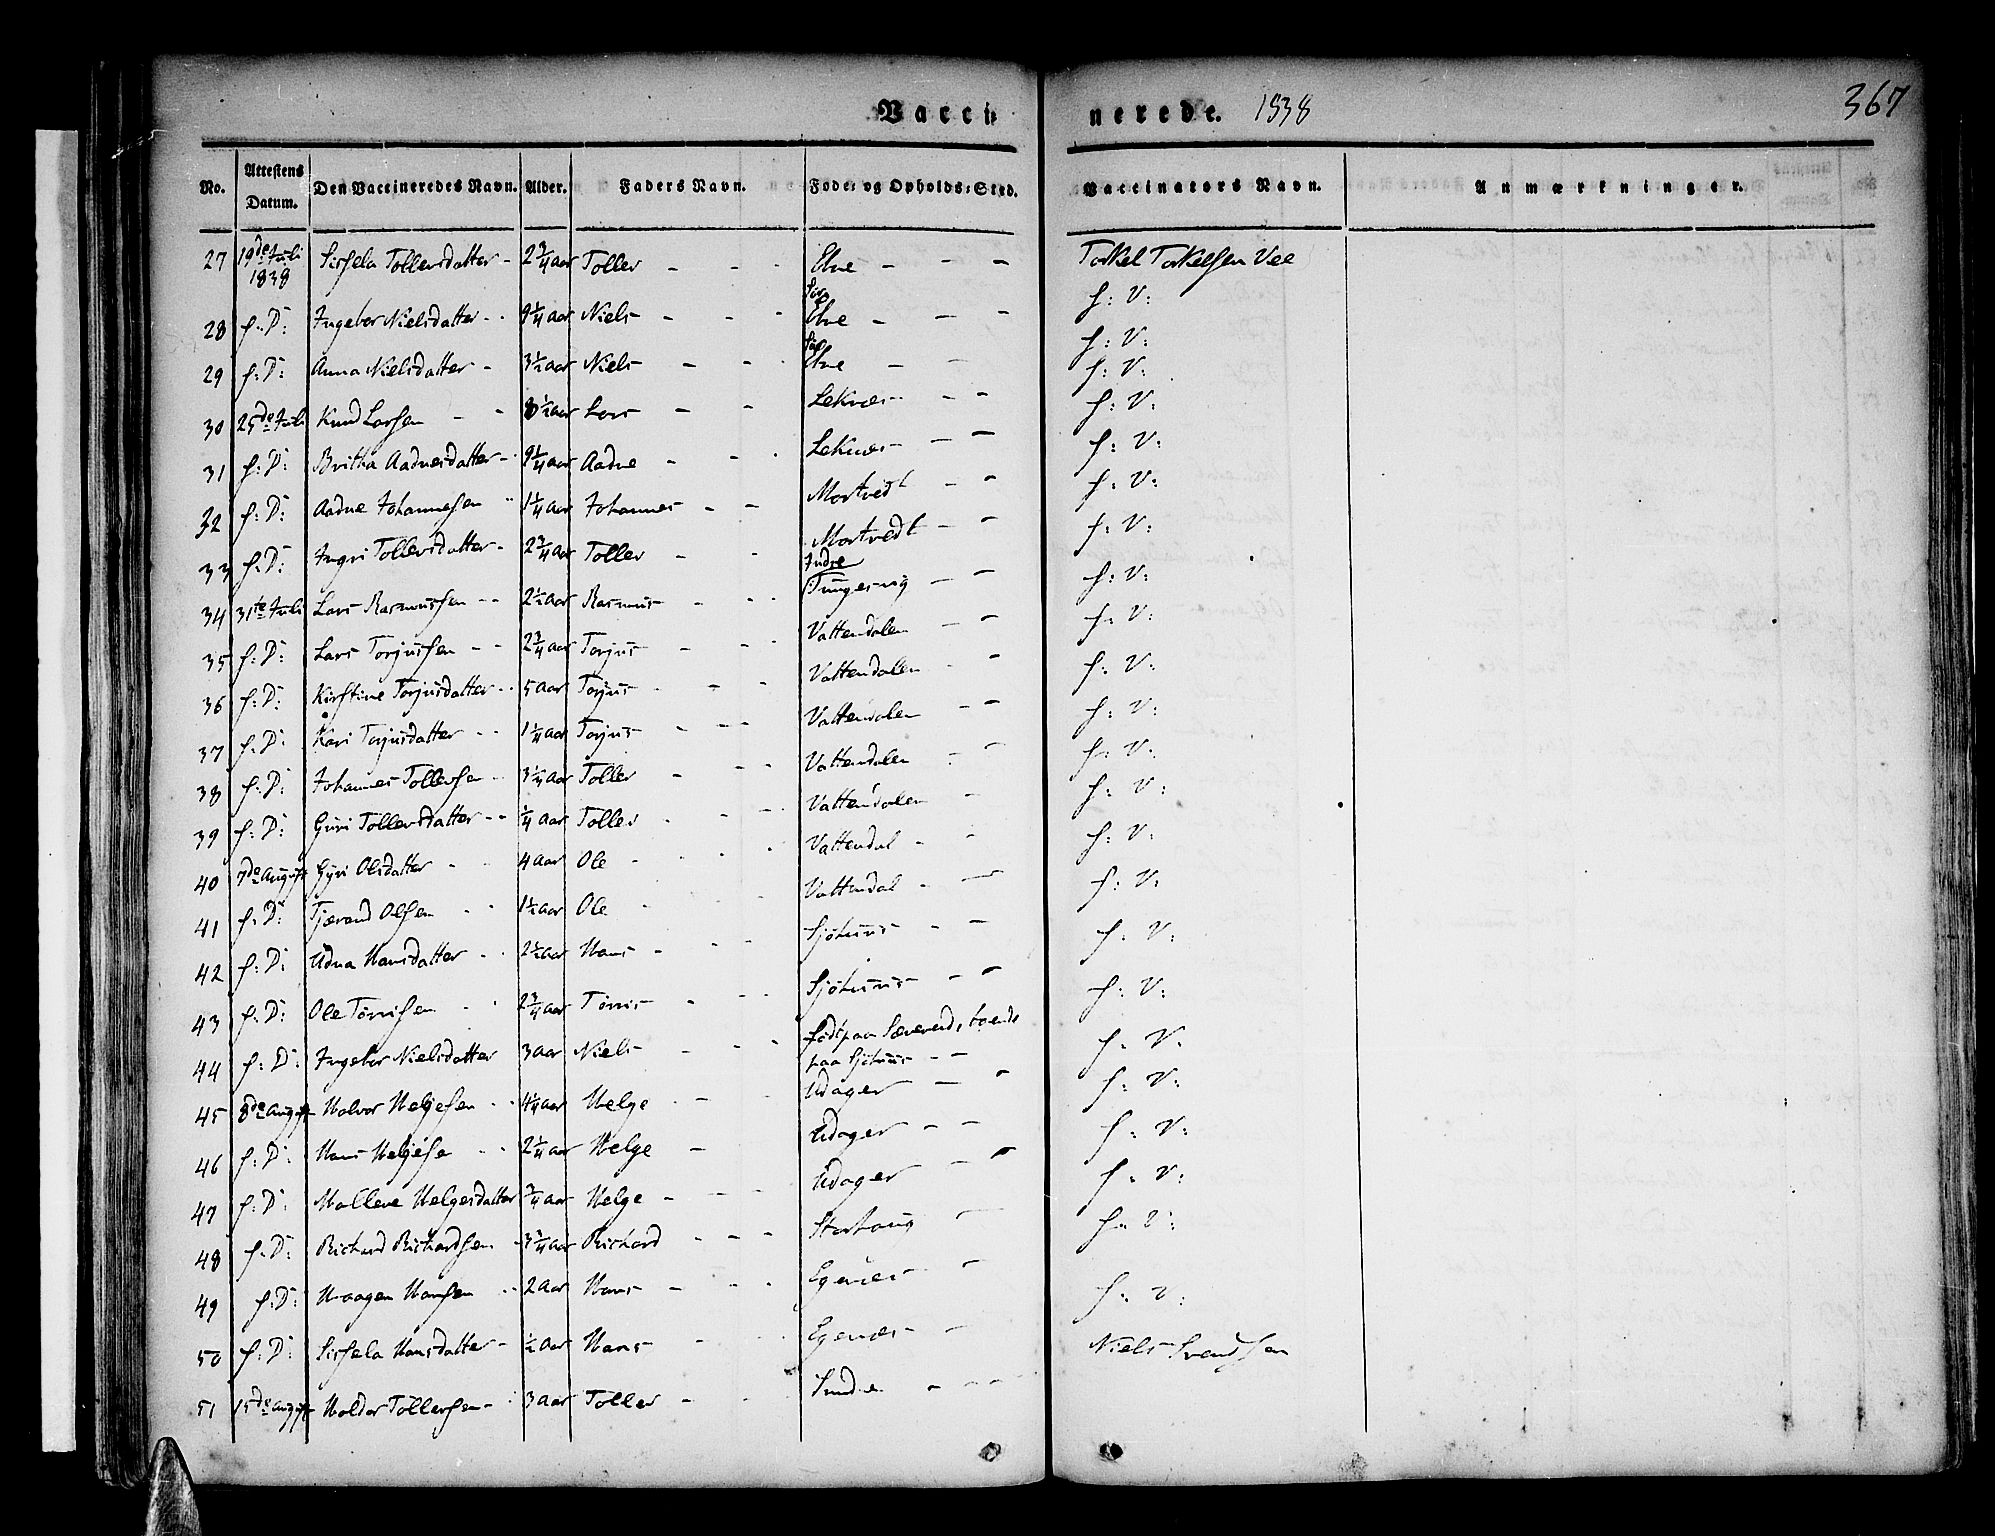 Vacci nerede. 1838 367
No. Attestens Datum. Den Vaccineredes Navn. Alder. Faders Navn. Føde- og Opholds-Sted. Vaccinators Navn. Anmærkninger.
27 19de Juli 1838 Sissela Tollersdatter 2 3/4 aar Toller Elve Torkel Torkelsen Vee
28 s: D: Ingebor Nielsdatter 9 1/4 aar Niels Elve s: V:
29 s: D: Anna Nielsdatter 3 1/2 aar Niels Elve s: V:
30 25de Juli Knud Larsen 8 1/2 aar Lars Leknæs s: V:
31 s: D: Britha Aadnesdatter 9 1/4 aar Aadne Leknæs s: V:
32 s: D: Aadne Johannessen 1 1/4 aar Johannes Mortvedt s: V:
33 s: D: Ingri Tollersdatter 2 3/4 aar Toller Mortvedt s: V:
34 31te Juli Lars Rasmussen 2 1/2 aar Rasmus Indre Tungesvig s: V:
35 s: D: Lars Torjussen 2 3/4 aar Torjus Vattendalen s: V:
36 s: D: Kirstine Torjusdatter 5 aar Torjus Vattendalen s: V:
37 s: D: Kari Torjusdatter 1 1/4 aar Torjus Vattendalen s: V:
38 s: D: Johannes Tollersen 3 1/4 aar Toller Vattendalen s: V:
39 s: D: Guri Tollersdatter 1/4 aar Toller Vattendalen s: V:
40 7de August Gyri Olsdatter 4 aar Ole Vattendal s: V:
41 s: D: Tjærand Olsen 1 1/2 aar Ole Vattendal s: V:
42 s: D: Udna Hansdatter 2 1/2 aar Hans Sjøhuus s: V:
43 s: D: Ole Tørrisen 2 3/4 aar Tørris Sjøhuus s: V:
44 s: D: Ingebor Nielsdatter 3 aar Niels født paa Sævereid, boende paa Sjøhuus s: V:
45 8de August Halvor Helgesen 4 1/4 aar Helge Udager s: V:
46 s: D: Hans Helgesen 2 1/4 aar Helge Udager s: V:
47 s: D: Mallene Helgesdatter 3/4 aar Helge Udager s: V:
48 s: D: Richard Richardsen 3 3/4 aar Richard Storhoug s: V:
49 s: D: Haagen Hansen 2 aar Hans Egenæs s: V:
50 s: D: Sissela Hansdatter 1/2 aar Hans Egenæs
51 15de August Haldor Tollersen 3 aar Toller Sunde Niels Svendsen